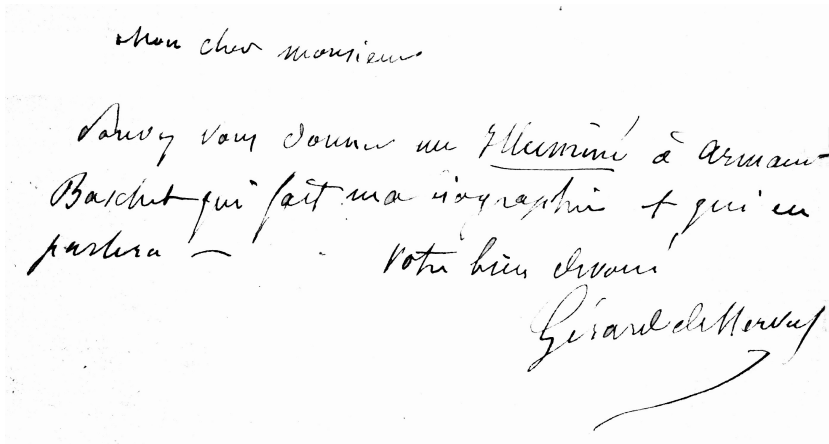 Mon cher monsieur
Pouvez vous donner un Illuminé à Armand
Baschet qui fait ma biographie & qui en
parlera —
Votre bien dévoué
Gérard de Nerval